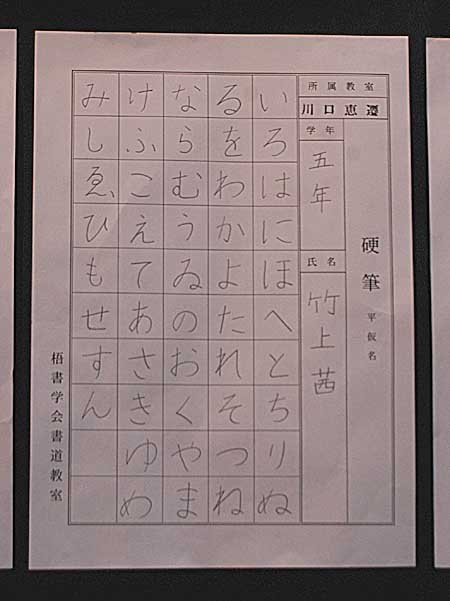 硬筆 平仮名
所属教室
川口恵遷
学年
五年
氏名
竹上茜
いろはにほへとちりぬ
るをわかよたれそつね
ならむうゐのおくやま
けふこえてあさきゆめ
みしゑひもせすん
梧書学会書道教室